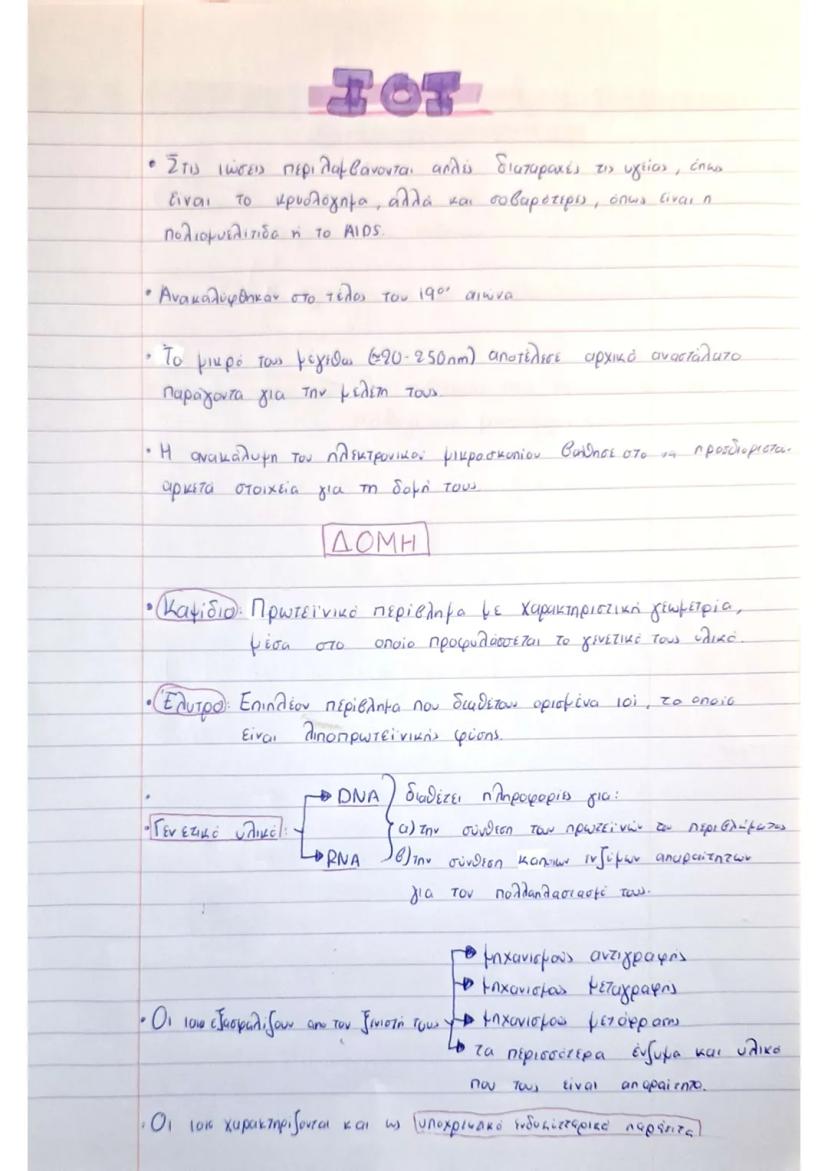 ΙΟΙ
• Στις ιώσεις περιλαμβάνονται απλές διαταραχές τις υγείας, όπως
είναι το κρυολόγημα, αλλά και σοβαρότερες, όπως είναι η
πολιομυελίτιδα ή το AIDS.
• Ανακαλύφθηκαν στο τέλος του 19ου αιώνα
• Το μικρό τους μέγεθος (≃20-250nm) αποτέλεσε αρχικό αναστάλατο
παράγοντα για την μελέτη τους.
• Η ανακάλυψη του ηλεκτρονικού μικροσκοπίου βοήθησε στο να προσδιοριστα
αρκετά στοιχεία για τη δομή τους.
ΔΟΜΗ
• Καψίδιο: Πρωτεϊνικό περίβλημα με χαρακτηριστική γεωμετρία,
μέσα στο οποίο προφυλάσσεται το γενετικό τους υλικό.
• Έλυτρο: Επιπλέον περίβλημα που διαθέτουν ορισμένα ιοί, το οποίο
είναι λιποπρωτεϊνικής φύσης.
• Γενετικό υλικό: DNA RNA διαθέτει πληροφορίες για:
α) την σύνθεση των πρωτεϊνών του περιβλήματος
β) την σύνθεση κάποιων ενζύμων απαραίτητων
για τον πολλαπλασιασμό τους.
• Οι ιοί εξασφαλίζουν απο τον ξενιστή τους
μηχανισμούς αντιγραφής
μηχανισμούς μεταγραφής
μηχανισμού μετάφρασης
τα περισσότερα ένζυμα και υλικά
που τους είναι απαραίτητο.
• Οι ιοί χαρακτηρίζονται και ως υποχρεωτικά ενδοκυτταρικά παράσιτα